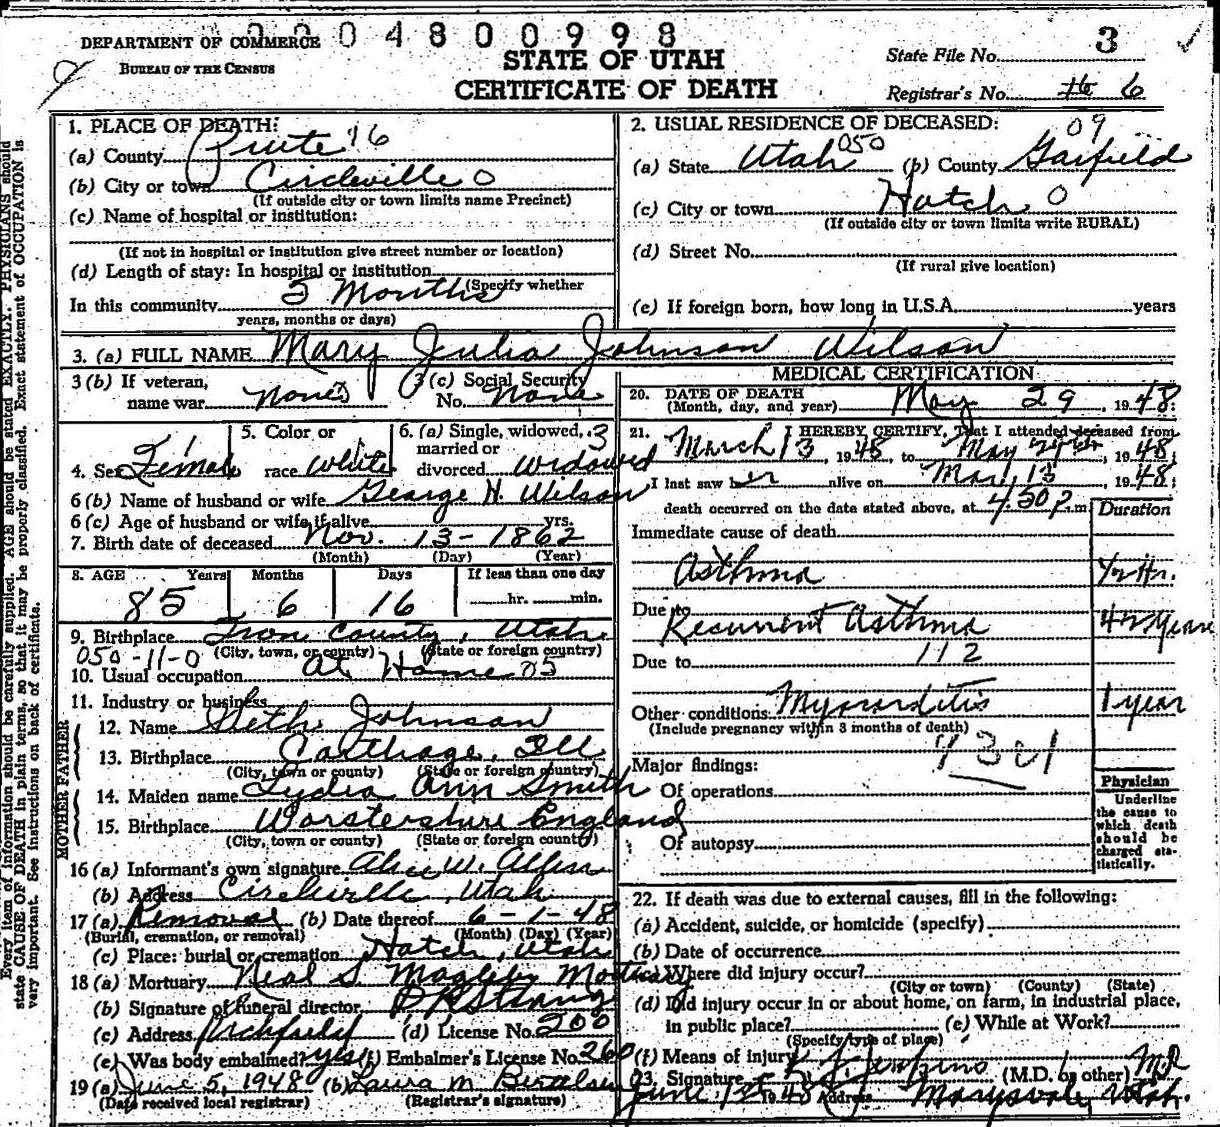 0004800998
DEPARTMENT OF COMMERCE
BUREAU OF THE CENSUS
STATE OF UTAH
CERTIFICATE OF DEATH
State File No. 3
Registrar's No. 16 6
Every item of information should be carefully supplied. AGE should be stated EXACTLY. PHYSICIANS should
state CAUSE OF DEATH in plain terms, so that it may be properly classified. Exact statement of OCCUPATION is
very important. See instructions on back of certificate.
1. PLACE OF DEATH:
(a) County Piute 16
(b) City or town Circleville 0
(If outside city or town limits name Precinct)
(c) Name of hospital or institution:
(If not in hospital or institution give street number or location)
(d) Length of stay: In hospital or institution
(Specify whether
In this community 5 Months
years, months or days)
2. USUAL RESIDENCE OF DECEASED: 09
(a) State Utah 050 (b) County Garfield
(c) City or town Hatch 0
(If outside city or town limits write RURAL)
(d) Street No.
(If rural give location)
(e) If foreign born, how long in U.S.A. years
3. (a) FULL NAME Mary Julia Johnson Wilson
3 (b) If veteran, name war None 3 (c) Social Security No. None
4. Sex Female 5. Color or race white 6. (a) Single, widowed, married or divorced widowed 3
6 (b) Name of husband or wife George H. Wilson
6 (c) Age of husband or wife, if alive yrs.
7. Birth date of deceased Nov. 13 - 1862
(Month) (Day) (Year)
8. AGE Years Months Days If less than one day
85 6 16 hr. min.
9. Birthplace Iron County, Utah
050-11-0 (City, town, or county) (State or foreign country)
10. Usual occupation at Home 05
11. Industry or business
FATHER
12. Name Seth Johnson
13. Birthplace Carthage, Ill
(City, town or county) (State or foreign country)
MOTHER
14. Maiden name Lydia Ann Smith
15. Birthplace Worstershire England
(City, town or county) (State or foreign country)
16 (a) Informant's own signature Alice W. Allen
(b) Address Circleville, Utah
17 (a) Removal (b) Date thereof 6-1-48
(Burial, cremation, or removal) (Month) (Day) (Year)
(c) Place: burial or cremation Hatch, Utah
18 (a) Mortuary Neal S. Magleby Mortuary
(b) Signature of funeral director
(c) Address Richfield (d) License No. 200
(e) Was body embalmed? yes (f) Embalmer's License No. 260
19 (a) June 5, 1948 (b) Laura M.
(Date received local registrar) (Registrar's signature)
MEDICAL CERTIFICATION
20. DATE OF DEATH
(Month, day, and year) May 29, 1948.
21. I HEREBY CERTIFY, That I attended deceased from
March 13, 1948, to May, 1948,
I last saw her alive on May 13, 1948;
death occurred on the date stated above, at 4:30 p.m. Duration
Immediate cause of death
Asthma ½ Hr.
Due to
Recurrent Asthma
Due to 112
Other conditions Myocarditis 1 year
(Include pregnancy within 3 months of death)
Major findings:
Of operations
Of autopsy
Physician
Underline
the cause to
which death
should be
charged sta-
tistically.
22. If death was due to external causes, fill in the following:
(a) Accident, suicide, or homicide (specify)
(b) Date of occurrence
(c) Where did injury occur?
(City or town) (County) (State)
(d) Did injury occur in or about home, on farm, in industrial place,
in public place? (e) While at Work?
(Specify type of place)
(f) Means of injury
23. Signature Jenkins (M.D. or other)
June 1948 Address Marysvale, Utah.